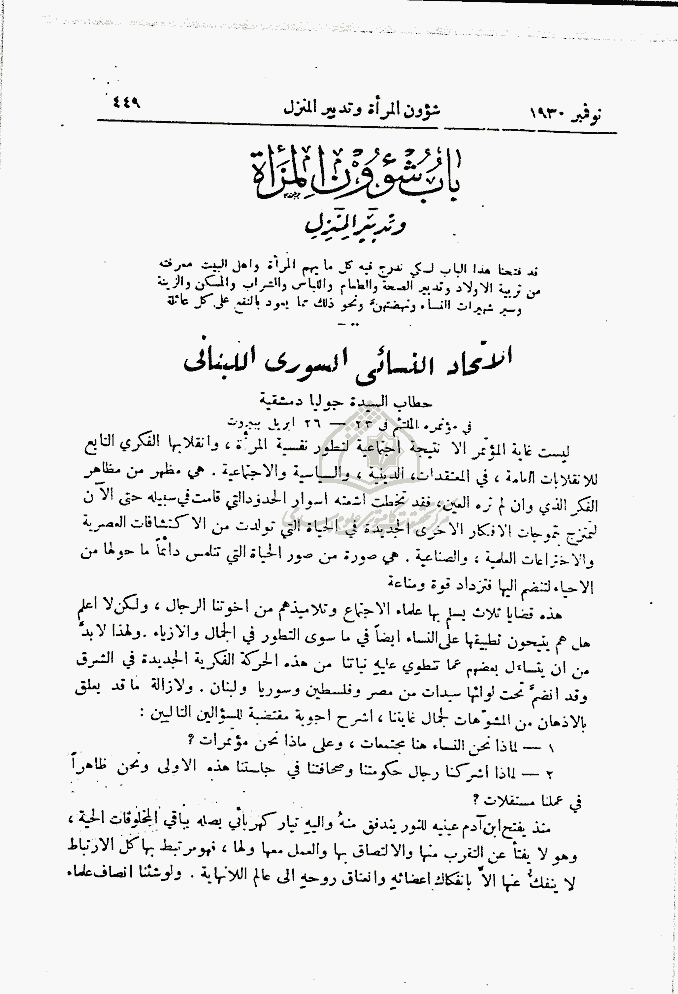 نوفمبر ١٩٣٠
شؤون المرأة وتدبير المنزل
٤٤٩
باب شؤون المرأة
وتدبير المنزل
قد فتحنا هذا الباب لكي ندرج فيه كل ما يهم المرأة واهل البيت معرفته
من تربية الاولاد وتدبير الصحة والطعام واللباس والشراب والمسكن والزينة
وسير شهيرات النساء ونهضتهنَّ ونحو ذلك مما يعود بالنفع على كل عائلة
الاتحاد النسائي السوري اللبناني
خطاب السيدة جوليا دمشقية
في مؤتمره الملتئم في ٢٣ — ٢٦ ابريل ببيروت
ليست غاية المؤتمر الا نتيجة اجتماعية لتطور نفسية المرأة ، وانقلابها الفكري التابع
للانقلابات العامة ، في المعتقدات، الدينية ، والسياسية والاجتماعية . هي مظهر من مظاهر
الفكر الذي وان لم تره العين، فقد تخطت اشعته اسوار الحدود التي قامت في سبيله حتى الآن
لتمتزج بتموجات الافكار الاخرى الجديدة في الحياة التي تولدت من الاكتشافات العصرية
والاختراعات العلمية ، والصناعية . هي صورة من صور الحياة التي تتلمس دائماً ما حولها من
الاحياء لتنضم اليها فتزداد قوة ومناعة
هذه قضايا ثلاث يسلم بها علماء الاجتماع وتلاميذهم من اخوتنا الرجال ، ولكن لا اعلم
هل هم يتيحون تطبيقها على النساء ايضاً في ما سوى التطور في الجمال والازياء . ولهذا لابدَّ
من ان يتساءل بعضهم عما تنطوي عليه نياتنا من هذه الحركة الفكرية الجديدة في الشرق
وقد انضمَّ تحت لوائها سيدات من مصر وفلسطين وسوريا ولبنان . ولازالة ما قد يعلق
بالاذهان من المشوّهات لجمال غايتنا ، اشرح اجوبة مقتضبة للسؤالين التاليين :
١ — لماذا نحن النساء هنا مجتمعات ، وعلى ماذا نحن مؤتمرات ؟
٢ — لماذا اشركنا رجال حكومتنا وصحافتنا في جلستنا هذه الاولى ونحن ظاهراً
في عملنا مستقلات ؟
منذ يفتح ابن آدم عينيه للنور يندفق منهُ واليهِ تيار كهربائي يصله بباقي المخلوقات الحية ،
وهو لا يفتأ عن التقرب منها والالتصاق بها والعمل معها ولها ، فهو مرتبط بها كل الارتباط
لا ينفكُّ عنها الاَّ بانفكاك اعضائهِ وانعتاق روحهِ الى عالم اللانهاية . ولو شئنا انصاف علماء